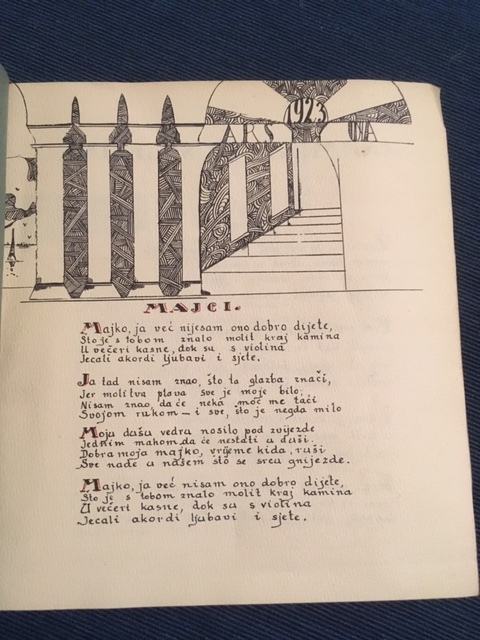 1923
ARS UNA
MAJCI.
Majko, ja već nijesam ono dobro dijete,
Što je s tobom znalo molit kraj kamina
U večeri kasne, dok su s violina
Jecali akordi ljubavi i sjete.
Ja tad nisam znao, što ta glazba znači,
Jer molitva plava sve je moje bilo;
Nisam znao, da će neka moć me tači
Svojom rukom — i sve, što je negda milo
Moju dušu vedru nosilo pod zvijezde
Jednim mahom, da će nestati u duši.
Dobra moja majko, vrijeme kida, ruši
Sve nade u našem što se srcu gnijezde.
Majko, ja već nisam ono dobro dijete,
Što je s tobom znalo molit kraj kamina
U večeri kasne, dok su s violina
Jecali akordi ljubavi i sjete.